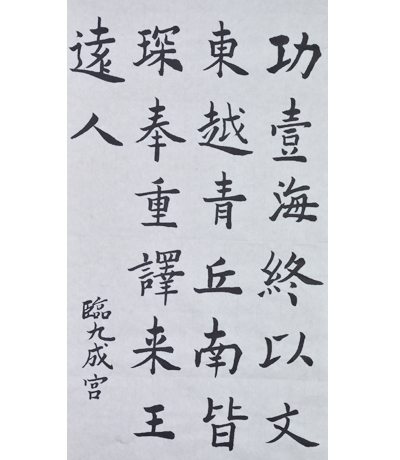 功壹海終以文
東越青丘南皆
琛奉重譯来王
遠人
臨九成宮